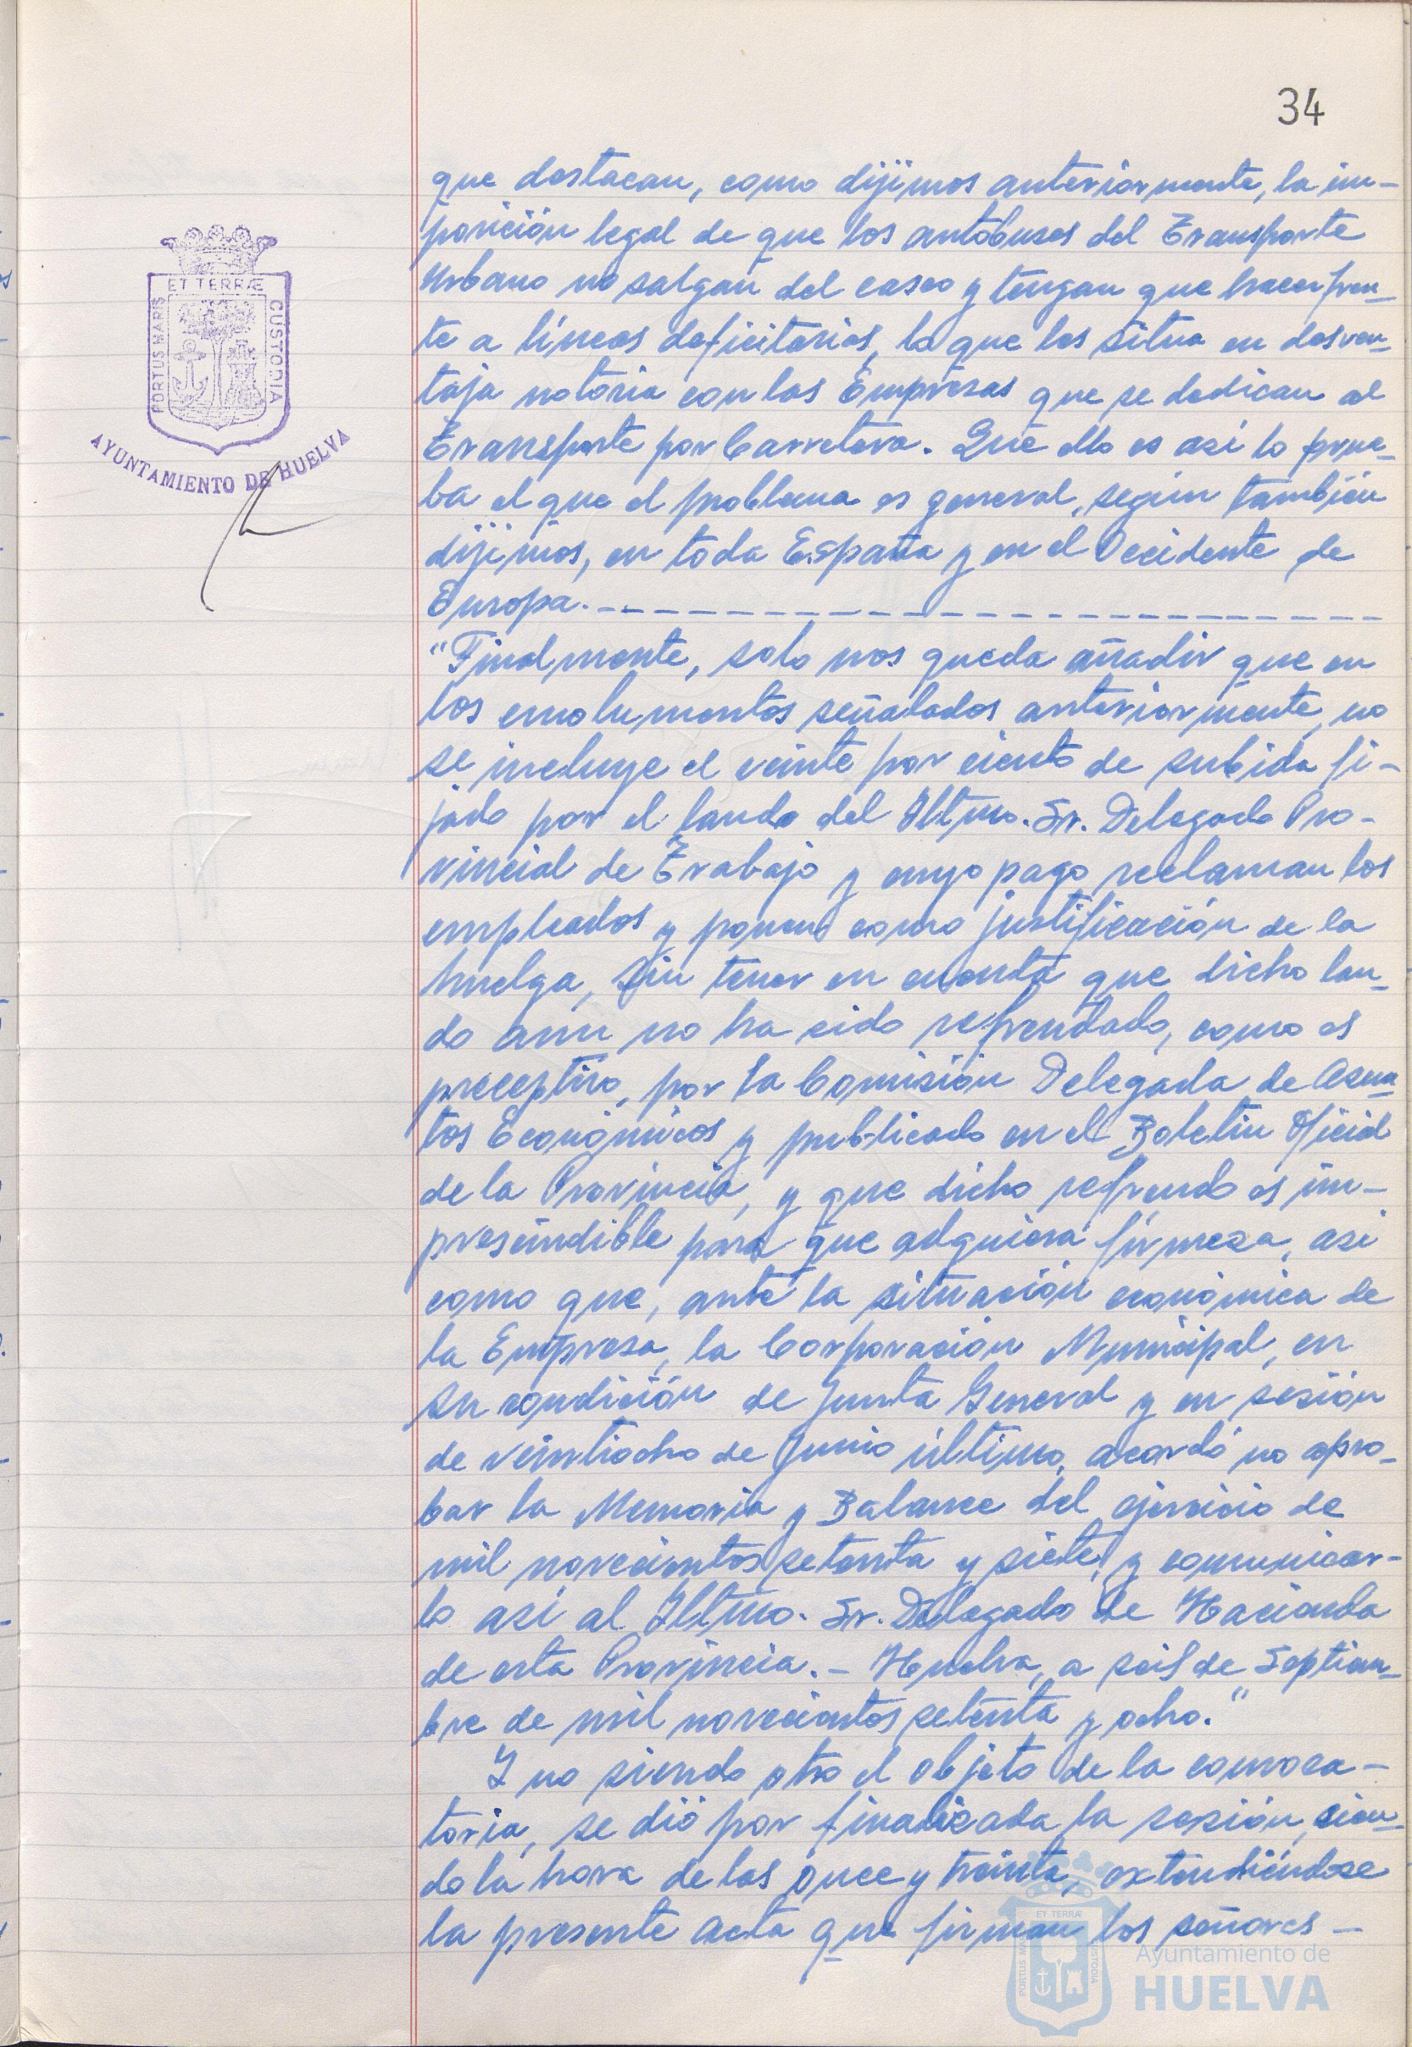 34
que destacan, como dijimos anteriormente, la im-
posición legal de que los autobuses del Transporte
Urbano no salgan del casco y tengan que hacer fren-
te a líneas deficitarias, lo que los situa en desven-
taja notoria con las Empresas que se dedican al
Transporte por Carretera. Que ello es así lo prue-
ba el que el problema es general, según también
dijimos, en toda España y en el Occidente de
Europa.
"Finalmente, solo nos queda añadir que en
los emolumentos señalados anteriormente, no
se incluye el veinte por ciento de subida fi-
jado por el laudo del Iltmo. Sr. Delegado Pro-
vincial de Trabajo y cuyo pago reclaman los
empleados y ponen como justificación de la
huelga, sin tener en cuenta que dicho lau-
do aun no ha sido refrendado, como es
preceptivo, por la Comisión Delegada de Asun-
tos Económicos y publicado en el Boletín Oficial
de la Provincia, y que dicho refrendo es im-
prescindible para que adquiera firmeza, asi
como que, ante la situación económica de
la Empresa, la Corporación Municipal, en
su condición de Junta General y en sesión
de veintiocho de Junio último, acordó no apro-
bar la Memoria y Balance del ejercicio de
mil novecientos setenta y siete, y comunicar-
lo asi al Iltmo. Sr. Delegado de Hacienda
de esta Provincia.- Huelva, a seis de Septiem-
bre de mil novecientos setenta y ocho."
Y no siendo otro el objeto de la convoca-
toria, se dió por finalizada la sesión, sien-
do la hora de las once y treinta, extendiéndose
la presente acta que firman los señores -
PORTUS MARIS ET TERRÆ CUSTODIA
AYUNTAMIENTO DE HUELVA
Ayuntamiento de
HUELVA